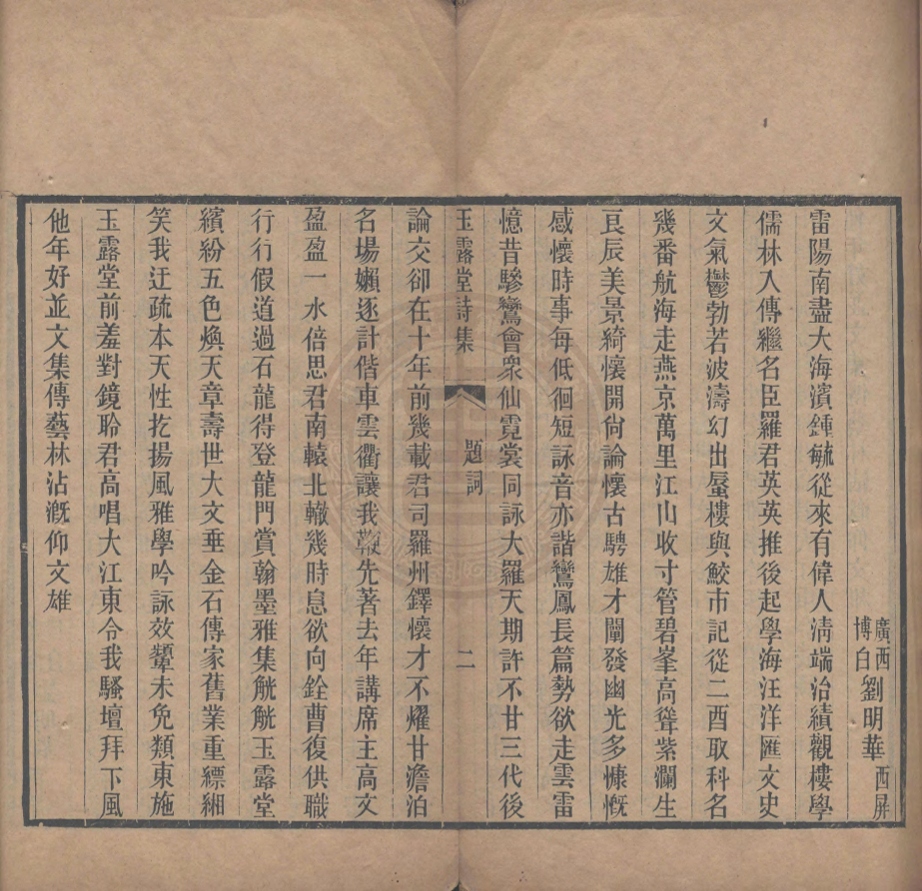 廣西博白劉明華西屏
雷陽南盡大海濱鍾毓從來有偉人淸端治績觀樓學
儒林入傳繼名臣羅君英英推後起學海汪洋匯文史
文氣鬱勃若波濤幻出蜃樓與鮫市記從二酉取科名
幾番航海走燕京萬里江山收寸管碧峯高聳紫瀾生
良辰美景綺懷開尙論懷古騁雄才闡發幽光多慷慨
感懷時事每低徊短詠音亦諧鸞鳳長篇勢欲走雲雷
憶昔驂鸞會衆仙霓裳同詠大羅天期許不甘三代後
玉露堂詩集 題詞 二
論交卻在十年前幾載君司羅州鐸懷才不耀甘澹泊
名場嬾逐計偕車雲衢讓我鞭先著去年講席主高文
盈盈一水倍思君南轅北轍幾時息欲向銓曹復供職
行行假道過石龍得登龍門賞翰墨雅集觥觥玉露堂
繽紛五色煥天章壽世大文垂金石傳家舊業重縹緗
笑我迂疏本天性扢揚風雅學吟詠效顰未免類東施
玉露堂前羞對鏡聆君高唱大江東令我騷壇拜下風
他年好並文集傳藝林沾漑仰文雄